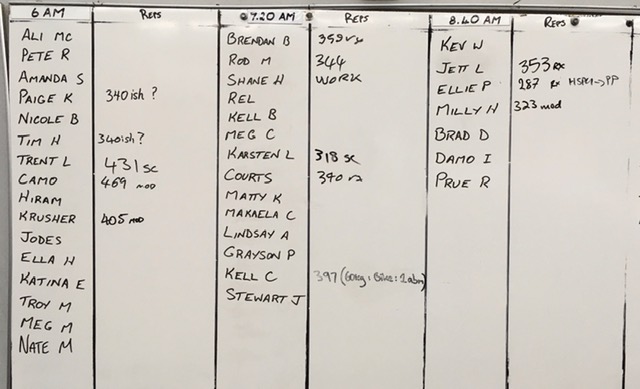 6 AM Reps
ALI MC
PETE R
AMANDA S
PAIGE K 340ish ?
NICOLE B
TIM H 340ish?
TRENT L 431 sc
CAMO 469 mod
HIRAM
KRUSHER 405 mod
JODES
ELLA H
KATINA E
TROY M
MEG M
NATE M
7.20 AM Reps
BRENDAN B
ROD M 344
SHANE H WORK
REL
KELL B
MEG C
KARSTEN L 318 sc
COURTS 340 rx
MATTY K
MAKAELA C
LINDSAY A
GRAYSON P
KELL C 397
STEWART J
8.40 AM Reps
KEV W
JETT L 353 Rx
ELLIE P 287 Rx HSPU→PP
MILLY H 323 mod
BRAD D
DAMO I
PRUE R